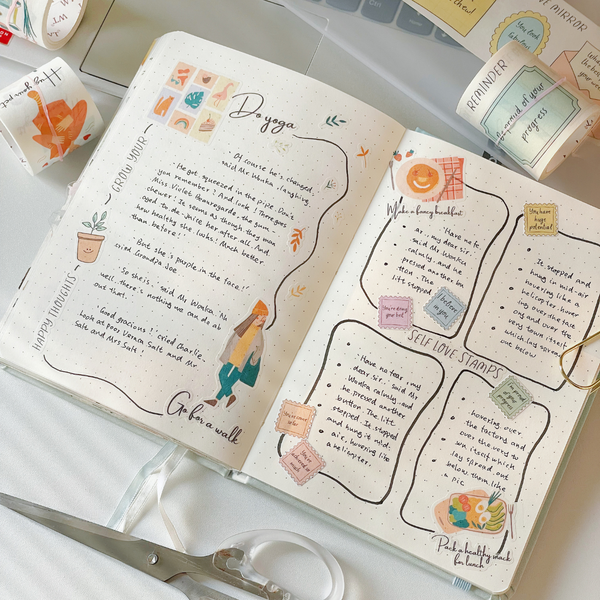 Do yoga
GROW YOUR
HAPPY THOUGHTS
"Of course he's changed,"
said Mr Wonka, laughing.
"He got squeezed in the pipe. Don't
you remember? And look! There goes
Miss Violet Beauregarde, the gum-
chewer! It seems as though they man
aged to de-Juice her after all. And
how healthy she looks! Much better
than before!"
"But she's purple in the face!"
cried Grandpa Joe
"So she is," said Mr Wonka. "Ah
well, there's nothing we can do ab
out that."
"Good gracious!" cried Charlie.
Look at poor Veruca Salt and Mr
Salt and Mrs Salt!
Go for a walk
Make a fancy breakfast
"Have no fe
ar, my dear sir,"
said Mr Wonka
calmly, and he
pressed another bu
tton. The
lift stopped
You have
huge
potential
It stopped and
hung in mid-air
hovering like a
helicopter hover
ing over the
and over the
very town itself
which lay spread
out below
I believe
in you
SELF LOVE STAMPS
"Have no fear, my
dear sir," said Mr
Wonka calmly, and
he pressed another
button. The lift
stopped. It stopped
and hung in mid-
air, hovering like
a helicopter.
hovering over
the factory and
over the very to
wn itself which
lay spread out
below them like
a pic
Pack a healthy snack
for lunch
Hug your pet
REMINDER
progress
MIRROR
You look
chew!